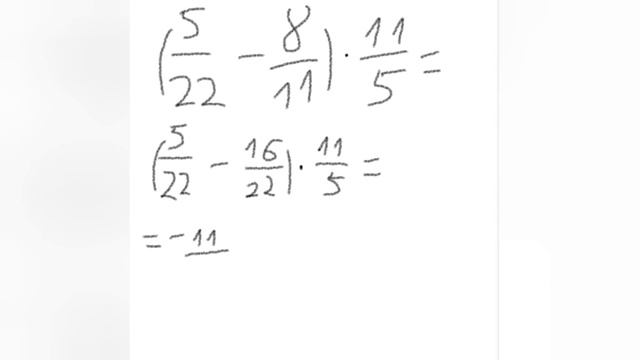 (5/22 - 8/11) · 11/5 =
(5/22 - 16/22) · 11/5 =
= - 11/